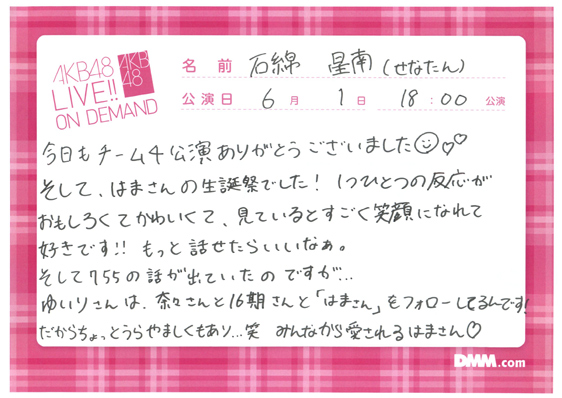 AKB48
LIVE!!
ON DEMAND
AKB
48
名 前 石綿 星南(せなたん)
公演日 6月 1日 18:00 公演
今日もチーム4公演ありがとうございました
そして、はまさんの生誕祭でした! 1つひとつの反応が
おもしろくてかわいくて、見ているとすごく笑顔になれて
好きです!! もっと話せたらいいなぁ。
そして755の話が出ていたのですが...
ゆいりさんは、奈々さんと16期さんと「はまさん」をフォローしてるんです!
だからちょっとうらやましくもあり...笑 みんなから愛されるはまさん♡
DMM.com